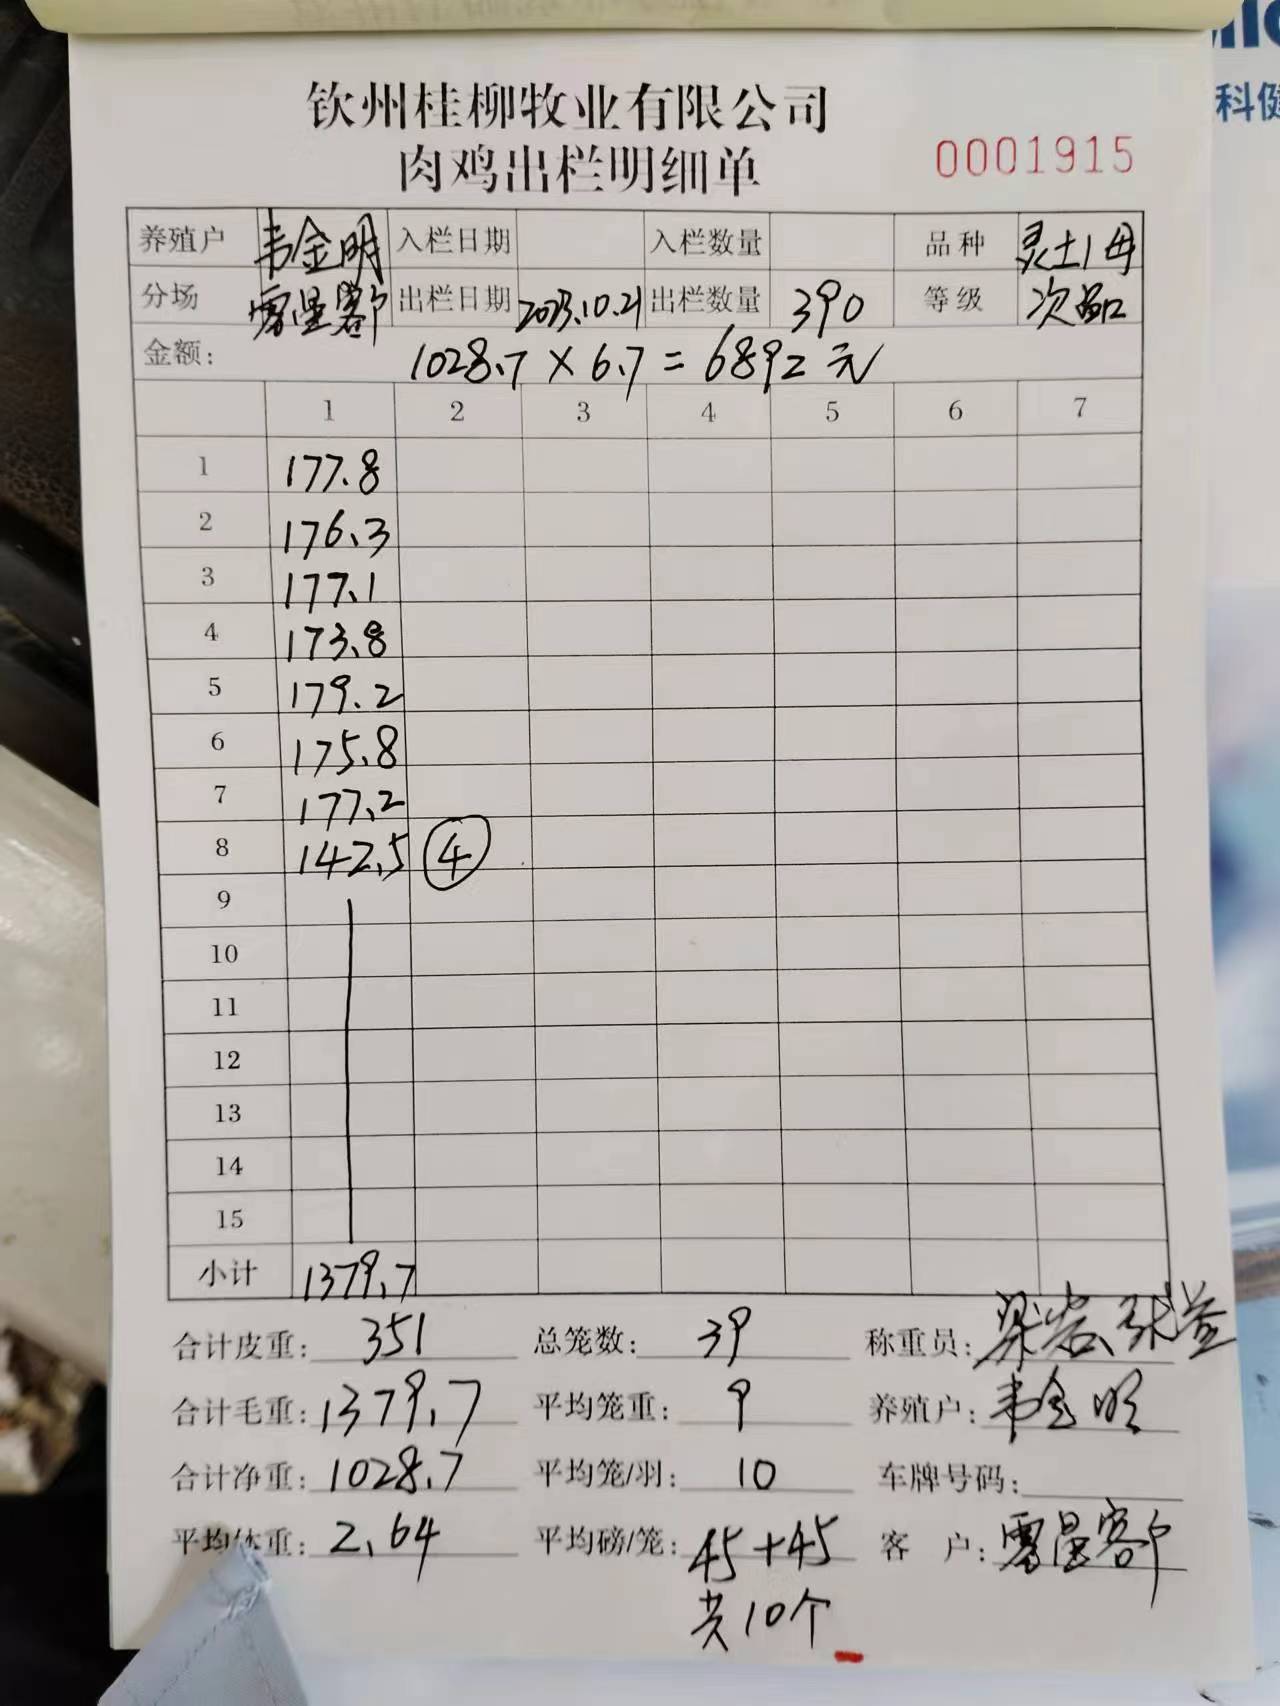 科健
钦州桂柳牧业有限公司
肉鸡出栏明细单
0001915
养殖户 韦金明 入栏日期 入栏数量 品种 灵土1母
分场 出栏日期 2023.10.21 出栏数量 390 等级 次品
金额: 1028.7 × 6.7 = 6892元
1 2 3 4 5 6 7
1 177.8
2 176.3
3 177.1
4 173.8
5 179.2
6 175.8
7 177.2
8 142.5 ④
9
10
11
12
13
14
15
小计 1379.7
合计皮重: 351 总笼数: 39 称重员:
合计毛重: 1379.7 平均笼重: 9 养殖户: 韦金明
合计净重: 1028.7 平均笼/羽: 10 车牌号码:
平均体重: 2.64 平均磅/笼: 45+45 客户:
共10个